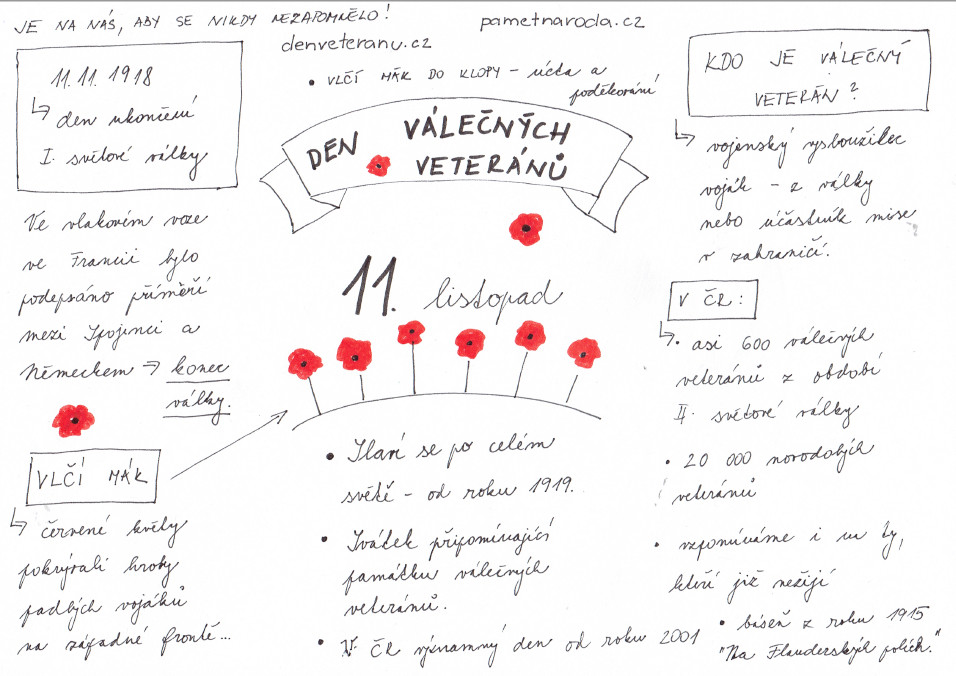 JE NA NÁS, ABY SE NIKDY NEZAPOMNĚLO!
pametnaroda.cz
denveteranu.cz
• VLČÍ MÁK DO KLOPY – úcta a
poděkování
11.11.1918
↳ den ukončení
I. světové války
DEN VÁLEČNÝCH
VETERÁNŮ
11. listopad
Ve vlakovém voze
ve Francii bylo
podepsáno příměří
mezi Spojenci a
Německem → konec
války.
VLČÍ MÁK
↳ červené květy
pokrývali hroby
padlých vojáků
na západné frontě...
• Slaví se po celém
světě – od roku 1919.
• Svátek připomínající
památku válečných
veteránů.
• V ČR významný den od roku 2001
KDO JE VÁLEČNÝ
VETERÁN?
↳ vojenský vysloužilec
voják – z války
nebo účastník mise
v zahraničí.
V ČR:
↳ • asi 600 válečných
veteránů z období
II. světové války
• 20 000 novodobých
veteránů
• vzpomínáme i na ty,
kteří již nežijí
• báseň z roku 1915
"Na Flanderských polích."